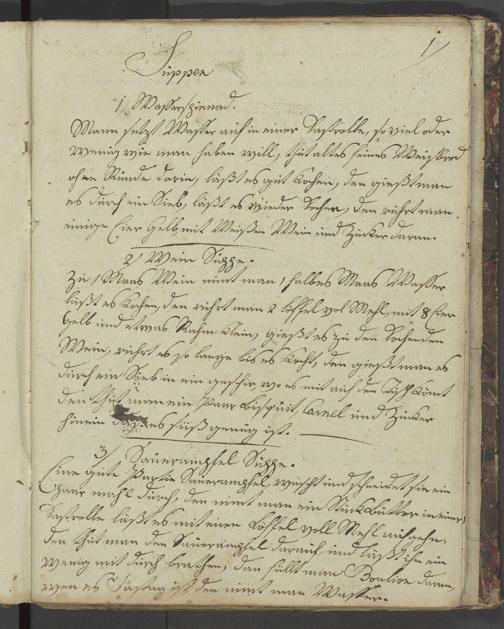 1
Suppen
1, Wassersuppe.
Mann setzt Wasser auf in einer Castrolle, so viel oder
wenig wie man haben will, thut altes feines Weisbrod
ohne Rinde darin, läßt es gut kochen, den gießt man
es durch ein Sieb, läßt es wieder kochen, den rührt man
einige Eier Gelb mit Weißen Wein und Zucker daran.
2, Wein Suppe.
Zu 1 Maas Wein nimt man 1 halbes Maas Wasser
läßt es kochen, den rührt man 2 Löffel vol Mehl, mit 8 Eier
Gelb und etwas Rahm klein, gießt es zu den kochenden
Wein, rührt es so lange bis es kocht, den gießt man es
durch ein Sieb in ein geschir wo es mit auf den Tisch kömt
den thut man ein Paar Bisquit, Canel und Zucker
hinein es süß genug ist.
3, Sauerampfel Suppe.
Eine gute Partie Sauerampfel wascht und schneidet sie ein
paar mahl durch, den nimt man ein Stük Butter in einer
Castrolle läßt es mit einen Löffel voll Mehl aufgehen,
den thut man den Sauerampfel darauf und läßt ihn ein
wenig mit durch, dan füllt man Boulion daran,
wen es Fasttag ist den nimt man Wasser.